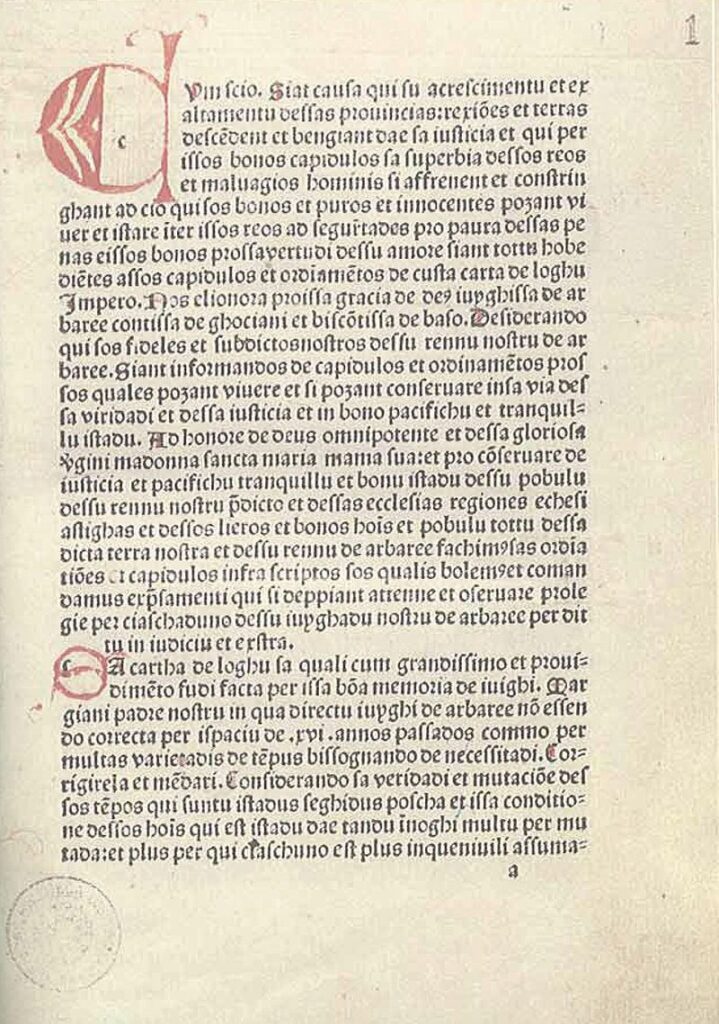 1
CVm scio. Siat causa qui su acrescimentu et ex
altamentu dessas prouincias: rexiões et terras
descēdent et bengiant dae sa iusticia et qui per
issos bonos capidulos sa superbia dessos reos
et maluagios hominis si affrenent et constrin
ghant ad cio qui sos bonos et puros et innocentes pozant vi
uer et istare īter issos reos ad segurtades pro paura dessas pe
nas e issos bonos prossa vertudi dessu amore siant tottu hobe
diētes assos capidulos et ordiamētos de custa carta de loghu
Impero. Nos elionora proissa gracia de deꝰ iuyghissa de ar
baree contissa de ghociani et biscōtissa de baso. Desiderando
qui sos fideles et subdictos nostros dessu rennu nostru de ar
baree. Siant informandos de capidulos et ordinamētos pros
sos quales pozant viuere et si pozant conseruare in sa via des
sa viridadi et dessa iusticia et in bono pacifichu et tranquil=
lu istadu. Ad honore de deus omnipotente et dessa gloriosa
v̄gini madonna sancta maria mama sua: et pro cōseruare de
iusticia et pacifichu tranquillu et bonu istadu dessu pobulu
dessu rennu nostru p̄dicto et dessas ecclesias regiones echesi
astighas et dessos lieros et bonos hoīs et pobulu tottu dessa
dicta terra nostra et dessu rennu de arbaree fachimꝰ sas ordīa
tiōes et capidulos infra scriptos sos qualis bolemꝰ et coman
damus exp̄samenti qui si deppiant attenne et oseruare pro le
gie per ciaschaduno dessu iuyghadu nostru de arbaree per dit
tu in iudiciu et exstra.
SA cartha de loghu sa quali cum grandissimo et proui=
dimēto fudi facta per issa bōa memoria de iuighi. Mar
giani padre nostru in qua directu iuyghi de arbaree nō essen
do correcta per ispaciu de .xvi. annos passados commo per
multas varietadis de tēpus bissognando de necessitadi. Cor=
rigirela et mēdari. Considerando sa veridadi et mutaciōe des
sos tēpos qui suntu istadus seghidus poscha et issa conditio=
ne dessos hoīs qui est istadu dae tandu īnoghi multu per mu
tada: et plus per qui ciaschuno est plus inqueniuili assuma=
a